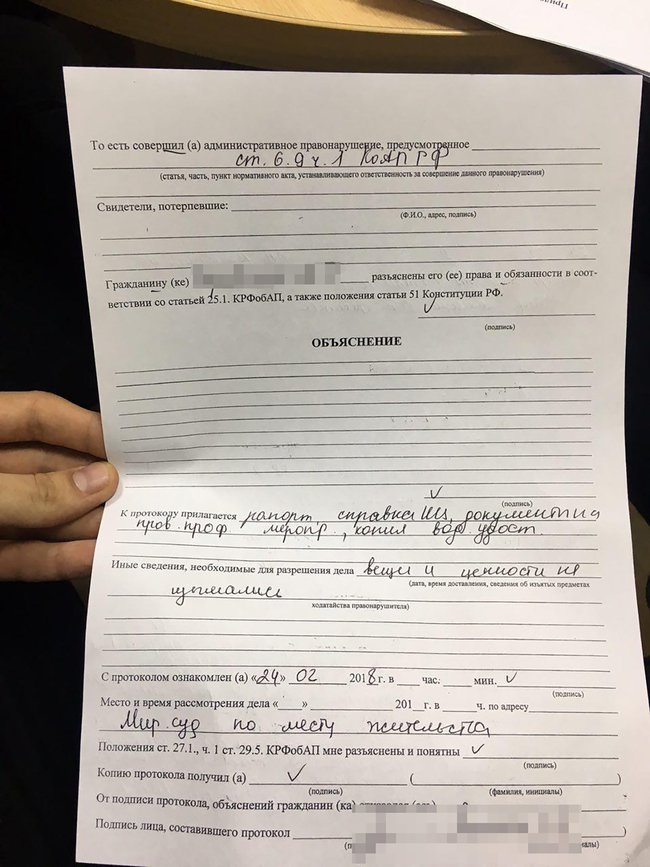 То есть совершил (а) административное правонарушение, предусмотренное
ст. 6.9 ч. 1 КоАП РФ
(статья, часть, пункт нормативного акта, устанавливающего ответственность за совершение данного правонарушения)
Свидетели, потерпевшие:
(Ф.И.О., адрес, подпись)
Гражданину (ке) разъяснены его (ее) права и обязанности в соот-
ветствии со статьей 25.1. КРФобАП, а также положения статьи 51 Конституции РФ.
(подпись)
ОБЪЯСНЕНИЕ
(подпись)
К протоколу прилагается рапорт, справка ИЦ, документы на
пров. проф меропр, копия вод. удост.
Иные сведения, необходимые для разрешения дела вещи и ценности не
(дата, время доставления, сведения об изъятых предметах
изымались
ходатайства правонарушителя)
С протоколом ознакомлен (а) «24» 02 2018г. в час. мин.
(подпись)
Место и время рассмотрения дела « » 201 г. в ч. по адресу
Мир. суд по месту жительства
Положения ст. 27.1., ч. 1 ст. 29.5. КРФобАП мне разъяснены и понятны
(подпись)
Копию протокола получил (а) ( )
(подпись) (фамилия, инициалы)
От подписи протокола, объяснений гражданин (ка)
Подпись лица, составившего протокол